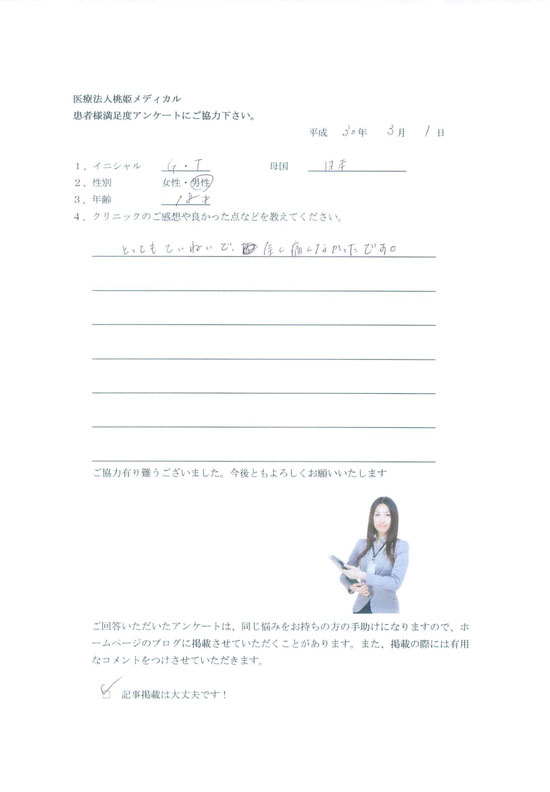 医療法人桃姫メディカル
患者様満足度アンケートにご協力下さい。
平成 30年 3月 1日
1、イニシャル G・T 母国 日本
2、性別 女性・男性
3、年齢 18才
4、クリニックのご感想や良かった点などを教えてください。
とってもていねいで、全く痛くなかったです。
ご協力有り難うございました。今後ともよろしくお願いいたします
ご回答いただいたアンケートは、同じ悩みをお持ちの方の手助けになりますので、ホ
ームページのブログに掲載させていただくことがあります。また、掲載の際には有用
なコメントをつけさせていただきます。
記事掲載は大丈夫です！